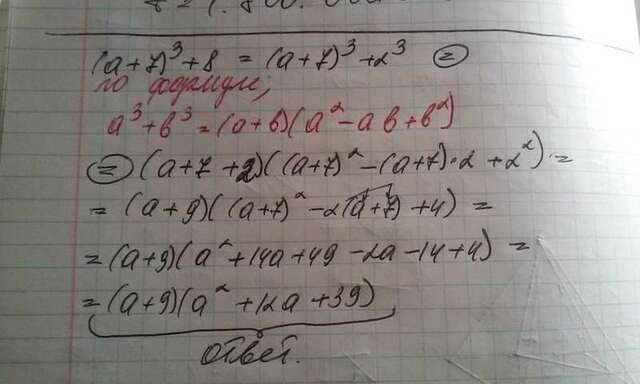 (a+7)³+8 = (a+7)³+2³ =
по формуле;
a³+b³=(a+b)(a²-ab+b²)
= (a+7+2)((a+7)²-(a+7)·2+2²) =
= (a+9)((a+7)²-2(a+7)+4) =
= (a+9)(a²+14a+49-2a-14+4) =
= (a+9)(a²+12a+39)
ответ.